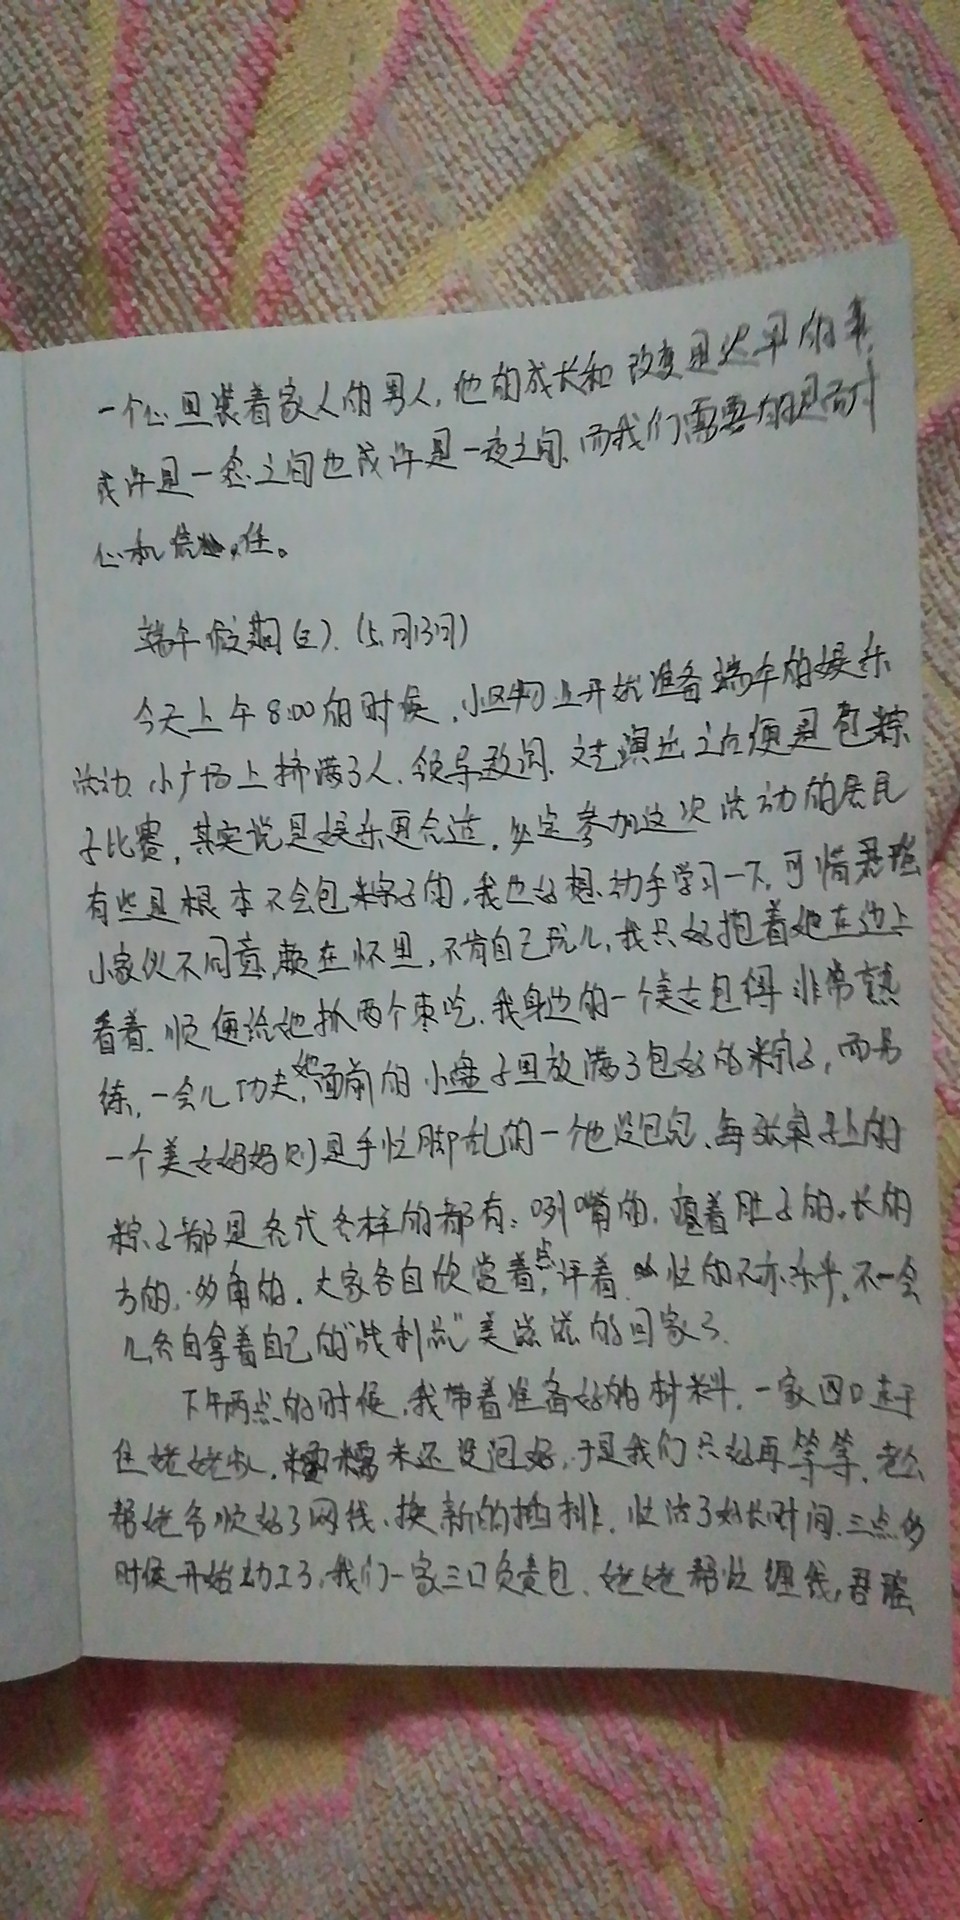 一个心里装着家人的男人，他的成长和改变是迟早的事，
或许是一念之间也或许是一夜之间，而我们需要的是耐
心和信任。
端午假期(三).(5月13日)
今天上午8:00的时候，小区物业开始准备端午的娱乐
活动，小广场上挤满了人，领导致词，文艺演出之后便是包粽
子比赛，其实说是娱乐更合适，必定参加这次活动的居民
有些是根本不会包粽子的，我也好想动手学习一下，可惜君瑶
小家伙不同意，赖在怀里，不肯自己玩儿，我只好抱着她在边上
看着，顺便给她抓两个枣吃，我身边的一个美女包得非常熟
练，一会儿功夫，她面前的小盘子里放满了包好的粽子，而另
一个美女妈妈则是手忙脚乱的一个也没包完，每张桌子上的
粽子都是各式各样的都有：咧嘴的，腆着肚子的，长的
方的，多角的，大家各自欣赏着，点评着，忙的不亦乐乎，不一会
儿各自拿着自己的"战利品"美滋滋的回家了.
下午两点的时候，我带着准备好的材料，一家四口赶于
住姥姥家，糯米还没泡好，于是我们只好再等等，老公
帮姥爷顺好了网线，换新的插排，忙活了好长时间，三点多
时候开始动工了，我们一家三口负责包，姥姥帮忙缠线，君瑶